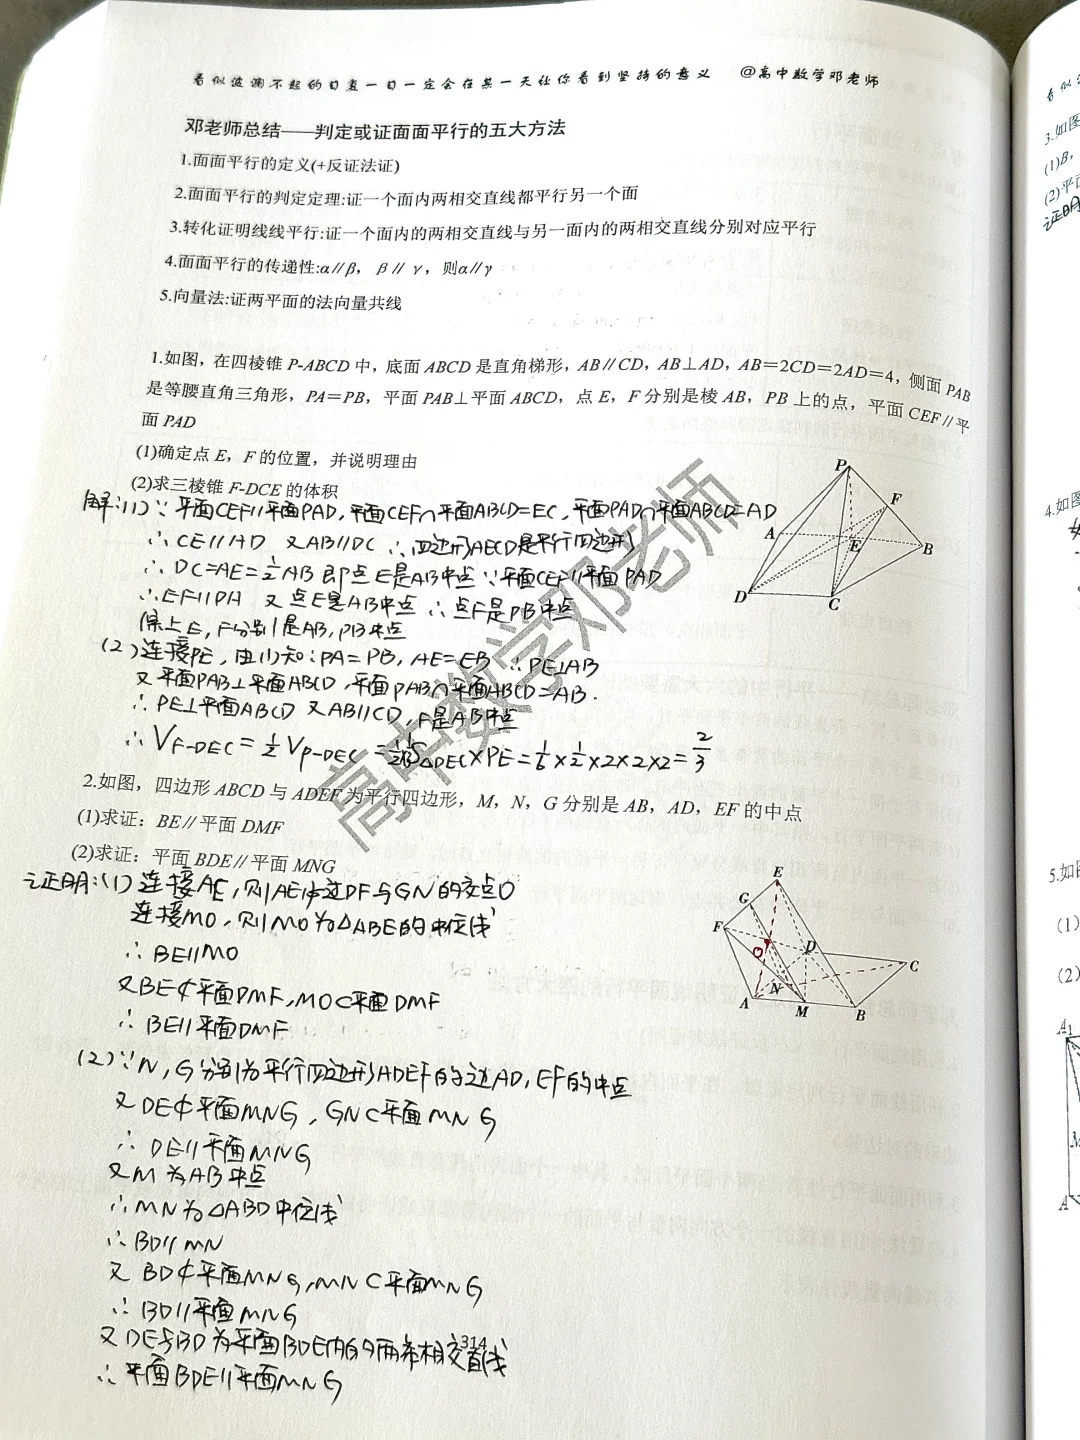 看似波澜不起的日复一日一定会在某一天让你看到坚持的意义 @高中数学邓老师
邓老师总结——判定或证面面平行的五大方法
1.面面平行的定义(+反证法证)
2.面面平行的判定定理:证一个面内两相交直线都平行另一个面
3.转化证明线线平行:证一个面内的两相交直线与另一面内的两相交直线分别对应平行
4.面面平行的传递性:α∥β， β∥ γ，则α∥γ
5.向量法:证两平面的法向量共线
1.如图，在四棱锥 P-ABCD 中，底面 ABCD 是直角梯形，AB∥CD，AB⊥AD，AB＝2CD＝2AD＝4，侧面 PAB
是等腰直角三角形，PA＝PB，平面 PAB⊥平面 ABCD，点 E，F 分别是棱 AB，PB 上的点，平面 CEF∥平
面 PAD
(1)确定点 E，F 的位置，并说明理由
(2)求三棱锥 F-DCE 的体积
解:(1)∵平面CEF∥平面PAD,平面CEF∩平面ABCD=EC,平面PAD∩平面ABCD=AD
∴CE∥AD 又AB∥DC ∴四边形AECD是平行四边形
∴DC=AE=1/2AB 即点E是AB中点∵平面CEF∥平面PAD
∴EF∥PA 又点E是AB中点 ∴点F是PB中点
综上E,F分别是AB,PB中点
(2)连接PE,由(1)知:PA=PB,AE=EB ∴PE⊥AB
又平面PAB⊥平面ABCD,平面PAB∩平面ABCD=AB.
∴PE⊥平面ABCD 又AB∥CD,F是AB中点
∴V F-DEC = 1/2 V P-DEC = 1/2·1/3 S△DEC×PE = 1/6×1/2×2×2×2 = 2/3
2.如图，四边形 ABCD 与 ADEF 为平行四边形，M，N，G 分别是 AB，AD，EF 的中点
(1)求证：BE∥平面 DMF
(2)求证：平面 BDE∥平面 MNG
证明:(1)连接AE,则AE必过DF与GN的交点O
连接MO,则MO为△ABE的中位线
∴BE∥MO
又BE⊄平面DMF,MO⊂平面DMF
∴BE∥平面DMF
(2)∵N,G分别为平行四边形ADEF的边AD,EF的中点
又DE⊄平面MNG,GN⊂平面MNG
∴DE∥平面MNG
又M为AB中点
∴MN为△ABD中位线
∴BD∥MN
又BD⊄平面MNG,MN⊂平面MNG
∴BD∥平面MNG
又DE与BD为平面BDE内的两条相交直线
∴平面BDE∥平面MNG
314
P
F
A
E
B
D
C
E
G
F
O
D
C
N
A
M
B
高中数学邓老师
看似
3.如图
(1)B，
(2)平面
证明
4.如图
5.如图
(1)
(2)
A₁
M
A